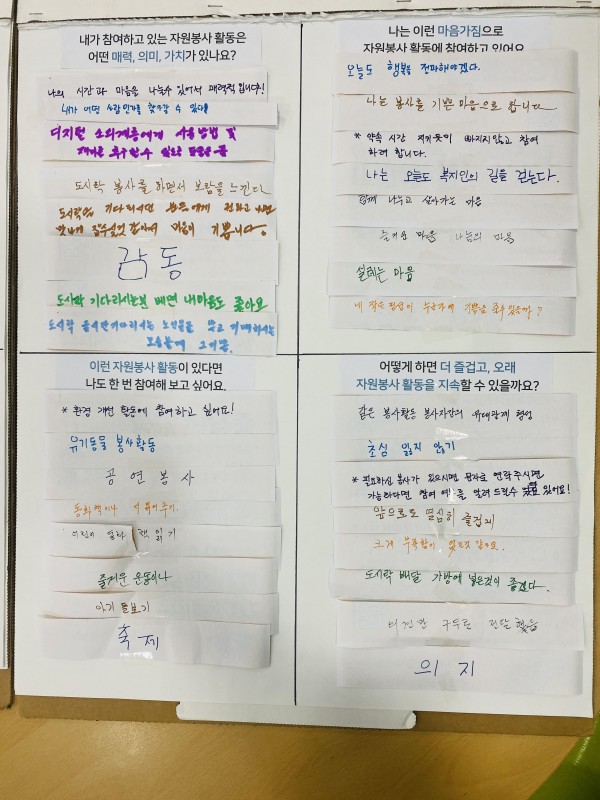 내가 참여하고 있는 자원봉사 활동은
어떤 매력, 의미, 가치가 있나요?
나의 시간과 마음을 나눌수 있어서 매력적입니다!
내가 어떤 사람인가를 찾아갈 수 있다
디지털 소외계층에게 사용방법 및
도시락 봉사를 하면서 보람을 느낀다
도시락을 기다리시던 분들에게 전하고 나면
맛나게 잡수실것 같아서 마음이 기쁩니다.
감동
도시락 기다리시는분 뵈면 내마음도 좋아요
도시락 음식만 기다리시는 노인분을
나는 이런 마음가짐으로
자원봉사 활동에 참여하고 있어요
오늘도 행복을 전파해야겠다.
나는 봉사를 기쁜 마음으로 합니다
* 약속 시간 지키듯이 빠지지않고 참여
하려 합니다.
나는 오늘도 복지인의 길을 걷는다.
함께 나누고 살아가는 마음
즐거운 마음 나눔의 마음
설레는 마음
네 작은 정성이 누군가에 기쁨을 줄수 있을까?
이런 자원봉사 활동이 있다면
나도 한 번 참여해 보고 싶어요.
* 환경 개선 활동에 참여하고 싶어요!
유기동물 봉사활동
공연봉사
동화책이나
책 읽기
즐거운 운동이나
아기 돌보기
축제
어떻게 하면 더 즐겁고, 오래
자원봉사 활동을 지속할 수 있을까요?
같은 봉사활동 봉사자간의 유대관계 형성
초심 잃지 않기
* 필요하신 봉사가 있으시면 문자로 연락주시면
가능하다면 참여 여부를 알려 드릴수 있어요!
앞으로도 열심히 즐겁게
크게 부족함이 없는것 같아요.
도시락 배달 가방에 넣은것이 좋겠다.
비건반 구두로 전달했음
의지